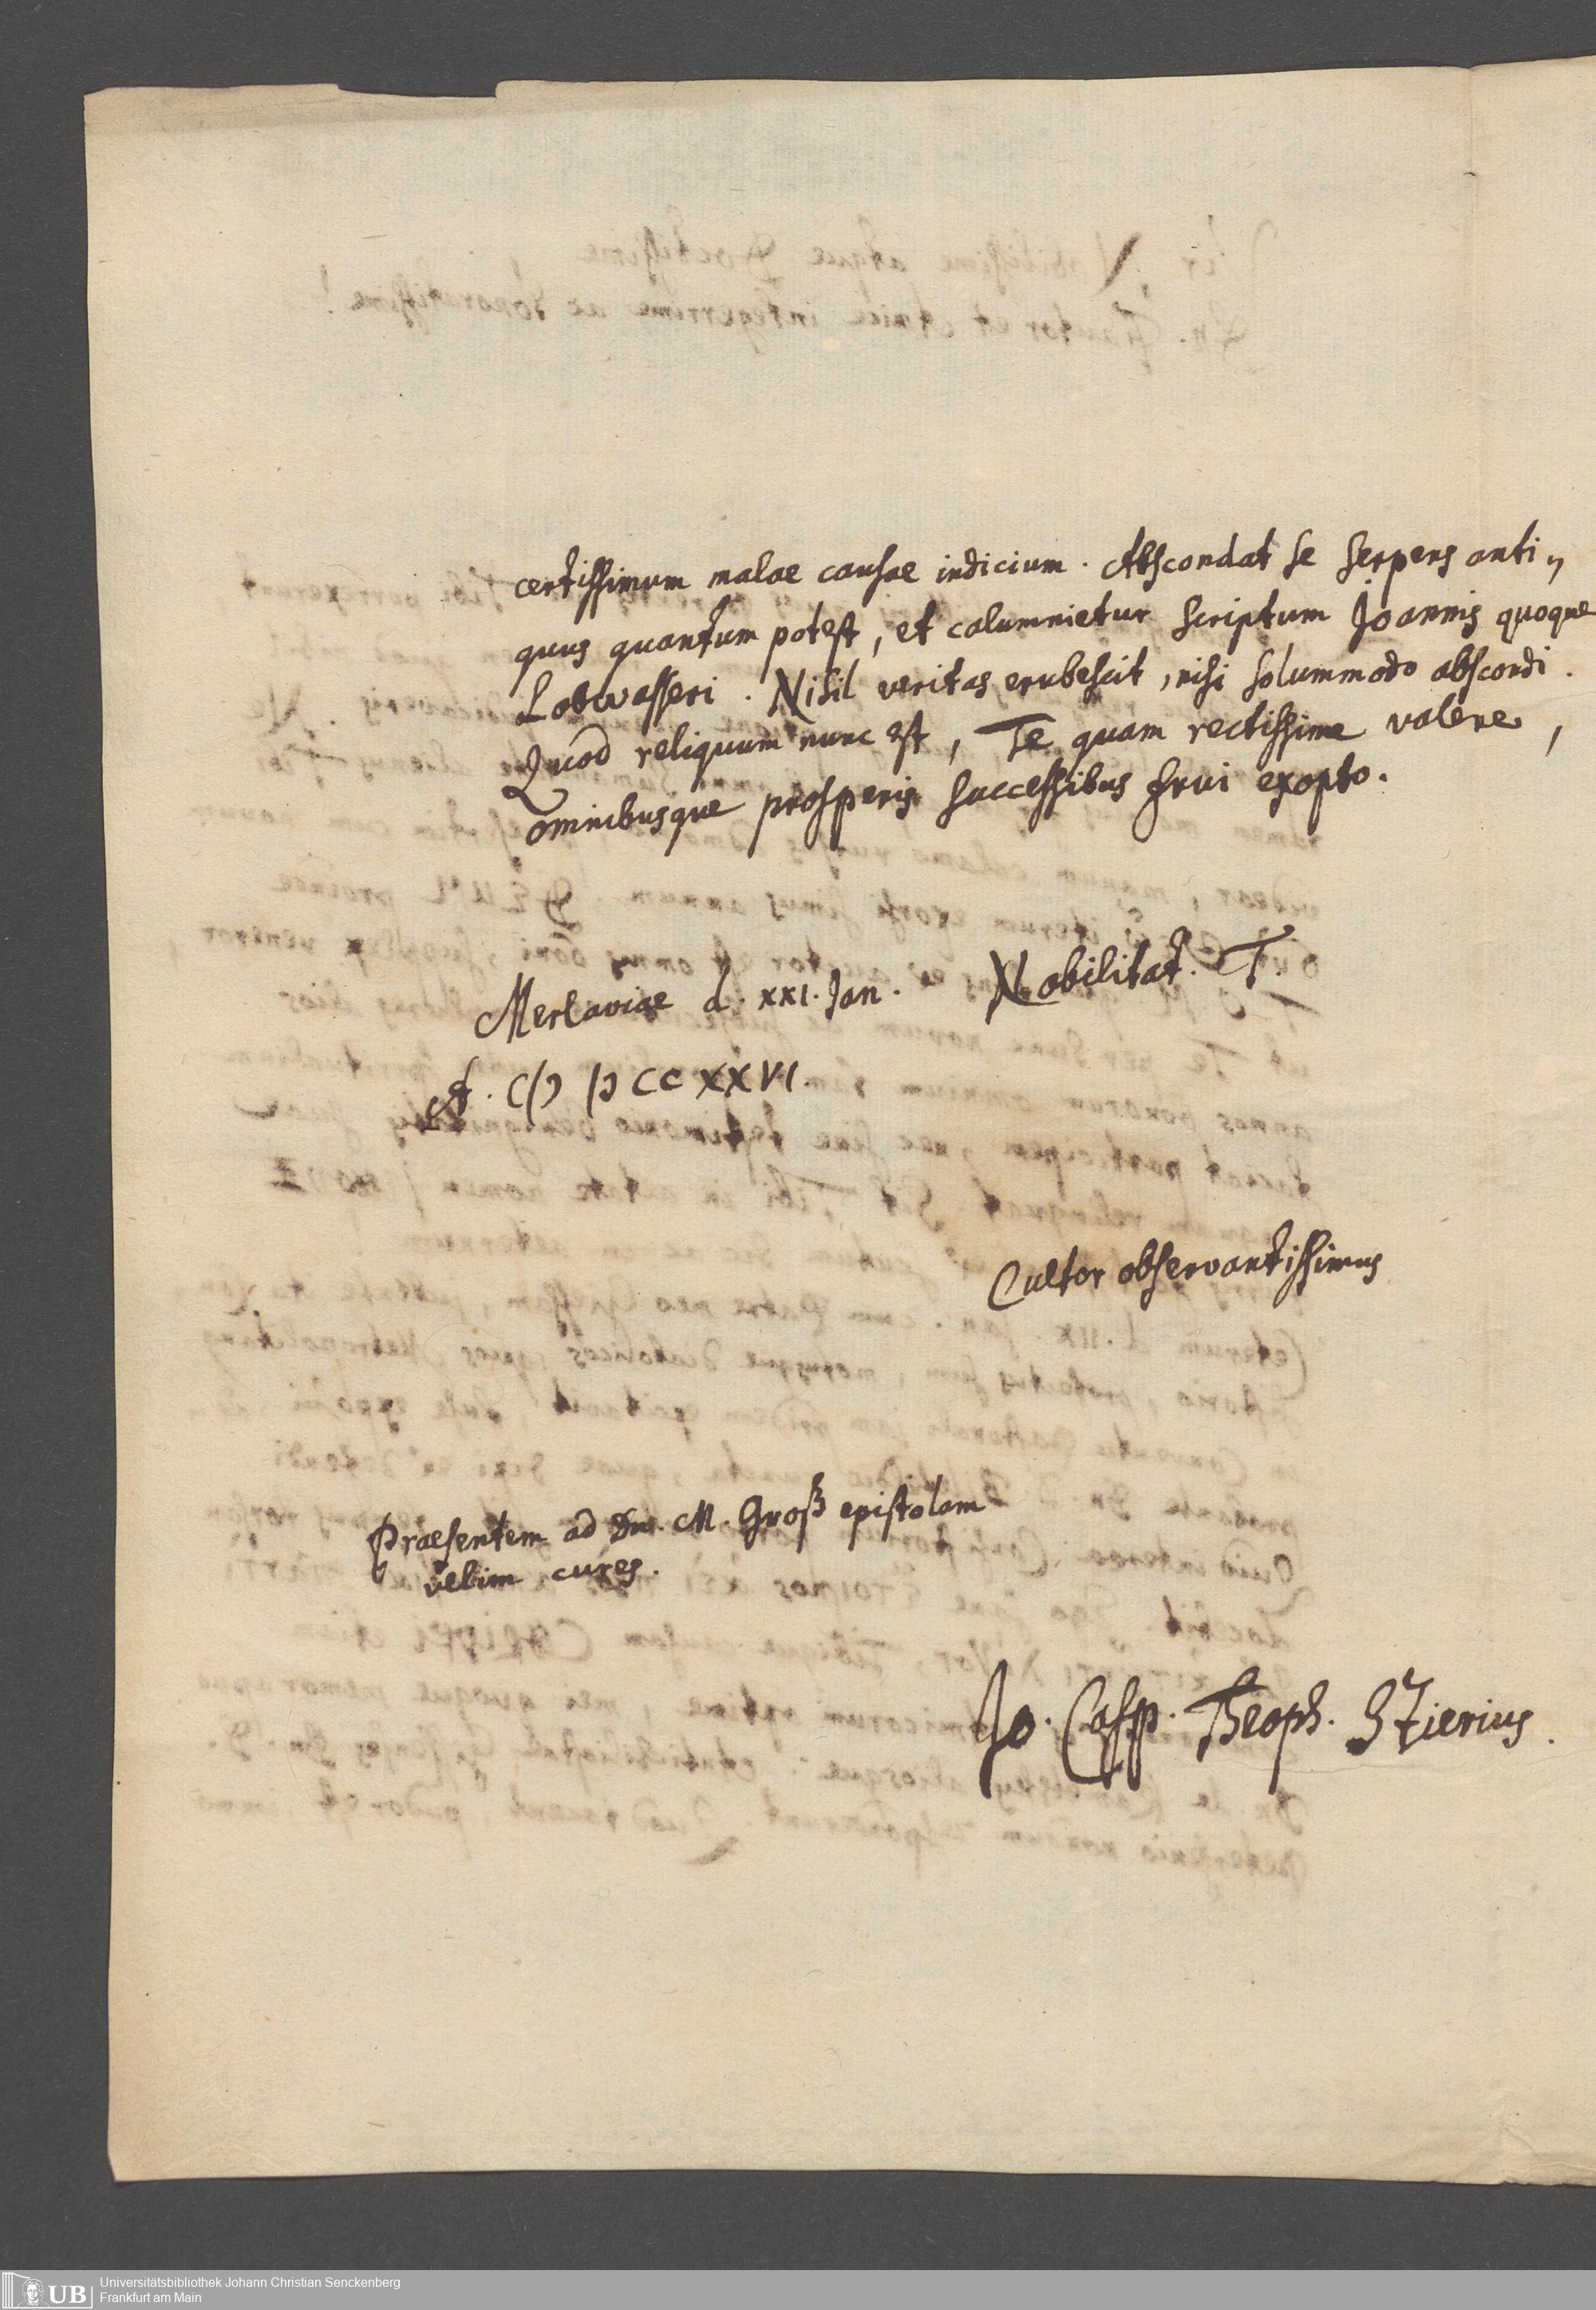 certissimum malae causae indicium. Abscondat se serpens anti„
quus quantum potest, et calumnietur scriptum Joannis quoque
Lobwasseri. Nihil veritas erubescit, nisi solummodo abscondi.
Quod reliquum nunc est, Te quam rectissime valere,
ominibusque prosperis successibus frui exopto.
Nobilitat. T
Merlaviae d. XXI. Jan.
A. CIↃ IↃ CC XXVI.
Cultor observantissimus
Praesentem ad Dn. M. Groß epistolam
velim cures.
Jo. Casp. Theoph. Stierius.
UB
Universitätsbibliothek Johann Christian Senckenberg
Frankfurt am Main